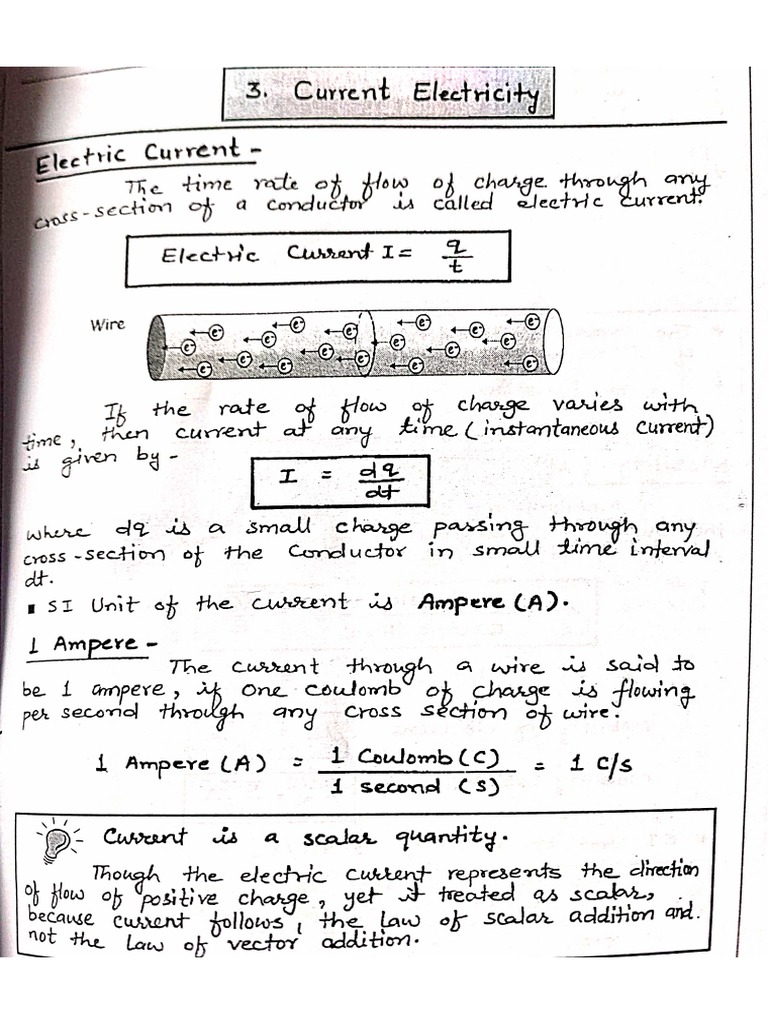 3. Current Electricity
Electric Current -
The time rate of flow of charge through any
cross-section of a conductor is called electric current.
Electric Current I = q/t
Wire
e⁻ e⁻ e⁻ e⁻ e⁻ e⁻
e⁻ e⁻ e⁻ e⁻ e⁻ e⁻
e⁻ e⁻ e⁻ e⁻ e⁻
If the rate of flow of charge varies with
time, then current at any time (instantaneous current)
is given by -
I = dq/dt
where dq is a small charge passing through any
cross-section of the Conductor in small time interval
dt.
▪ SI Unit of the current is Ampere (A).
1 Ampere -
The current through a wire is said to
be 1 ampere, if one coulomb of charge is flowing
per second through any cross section of wire.
1 Ampere (A) = 1 Coulomb (C) / 1 second (S) = 1 C/s
Current is a scalar quantity.
Though the electric current represents the direction
of flow of positive charge, yet it treated as scalar,
because current follows, the law of scalar addition and.
not the law of vector addition.